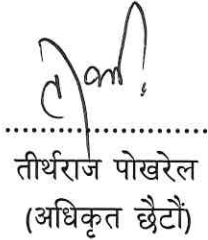 तीर्थराज पोखरेल
(अधिकृत छैटौं)